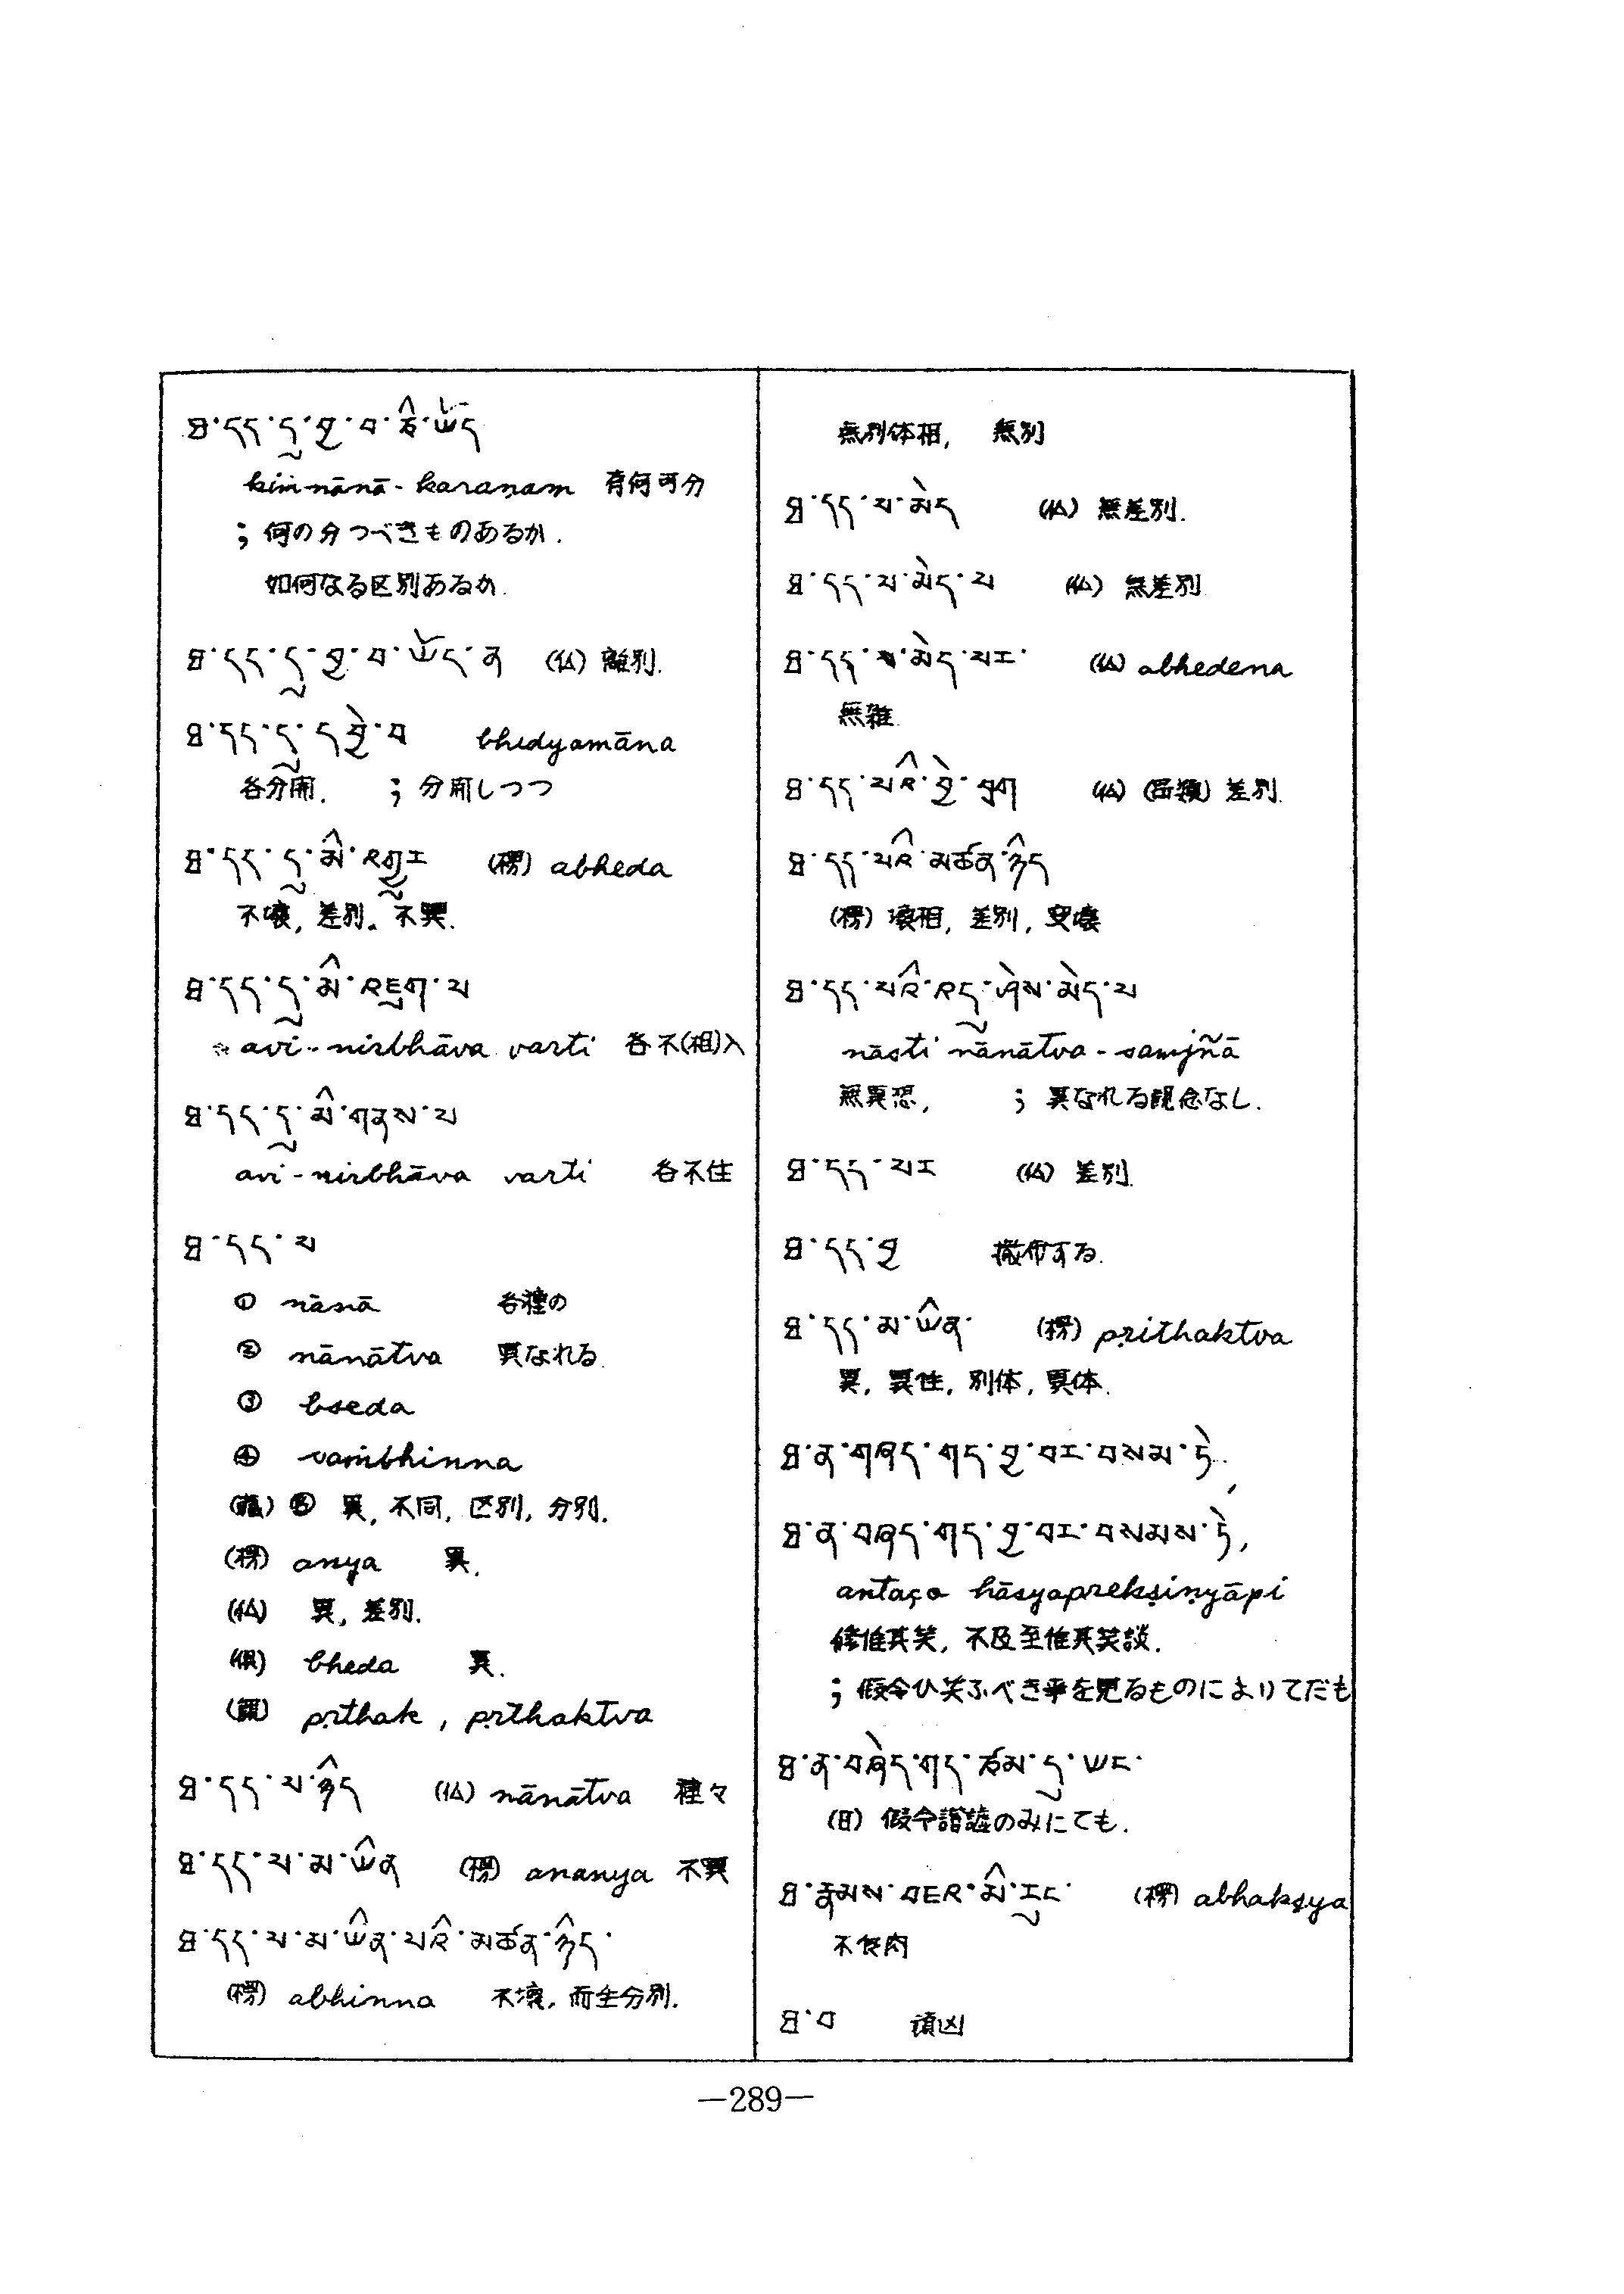 ཐ་དད་དུ་བྱ་བ་ཅི་ཡོད
kiṁ-nānā-karaṇam 有何可分
；何の分つべきものあるか.
如何なる区別あるか.
ཐ་དད་དུ་བྱ་བ་ཡོད་ན (仏) 離別.
ཐ་དད་དུ་དབྱེ་བ bhidyamāna
各分開. ；分開しつつ
ཐ་དད་དུ་མི་འགྱུར (楞) abheda
不壊, 差別. 不異.
ཐ་དད་དུ་མི་འཇུག་པ
avi-nirbhāva varti 各不(相)入
ཐ་དད་དུ་མི་གནས་པ
avi-nirbhāva varti 各不住
ཐ་དད་པ
① nānā 各種の
② nānātva 異なれる.
③ bseda
④ vaṁbhinna
(蔵) ⑤ 異, 不同, 区別, 分別.
(楞) anya 異.
(仏) 異, 差別.
(倶) bheda 異.
pṛthak, pṛthaktva
ཐ་དད་པ་ཉིད (仏) nānātva 種々
ཐ་དད་པ་མ་ཡིན (楞) ananya 不異
ཐ་དད་པ་མ་ཡིན་པའི་མཚན་ཉིད་
(楞) abhinna 不壊, 而生分別.
無別体相, 無別
ཐ་དད་པ་མེད (仏) 無差別.
ཐ་དད་པ་མེད་པ (仏) 無差別
ཐ་དད་པ་མེད་པར་ (仏) abhedena
無雑
ཐ་དད་པའི་བྱེ་བྲག (仏) (品類) 差別.
ཐ་དད་པའི་མཚན་ཉིད
(楞) 壊相, 差別, 変壊
ཐ་དད་པའི་འདུ་ཤེས་མེད་པ
nāsti nānātva-saṃjñā
無異想, ；異なれる観念なし.
ཐ་དད་པར (仏) 差別.
ཐ་དད་བྱ 撒布する.
ཐ་དད་མ་ཡིན་ (楞) pṛithaktva
異, 異性, 別体, 異体.
ཐ་ན་གཞད་གད་བྱ་བར་བསམ་ཏེ,
ཐ་ན་བཞད་གད་བྱ་བར་བསམས་ཏེ,
antaço hāsyaprekṣiṇyāpi
惟其笑, 不及至惟其笑談.
；仮令ひ笑ふべき事を見るものによりてだも
ཐ་ན་བཞེད་གད་ཙམ་དུ་ཡང་
仮令諧謔のみにても.
ཐ་རྣམས་བཟའ་མི་རུང་ (楞) abhakṣya
不食肉
ཐ་བ 頑凶
—289—